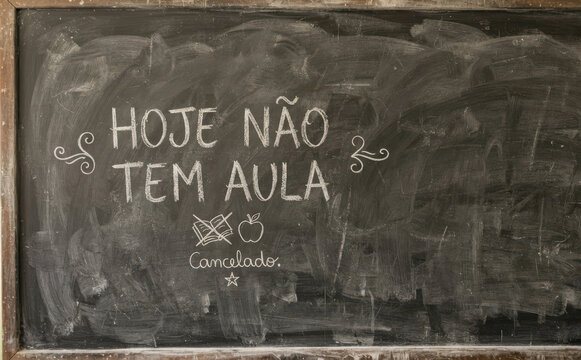 HOJE NÃO
TEM AULA
Cancelado.